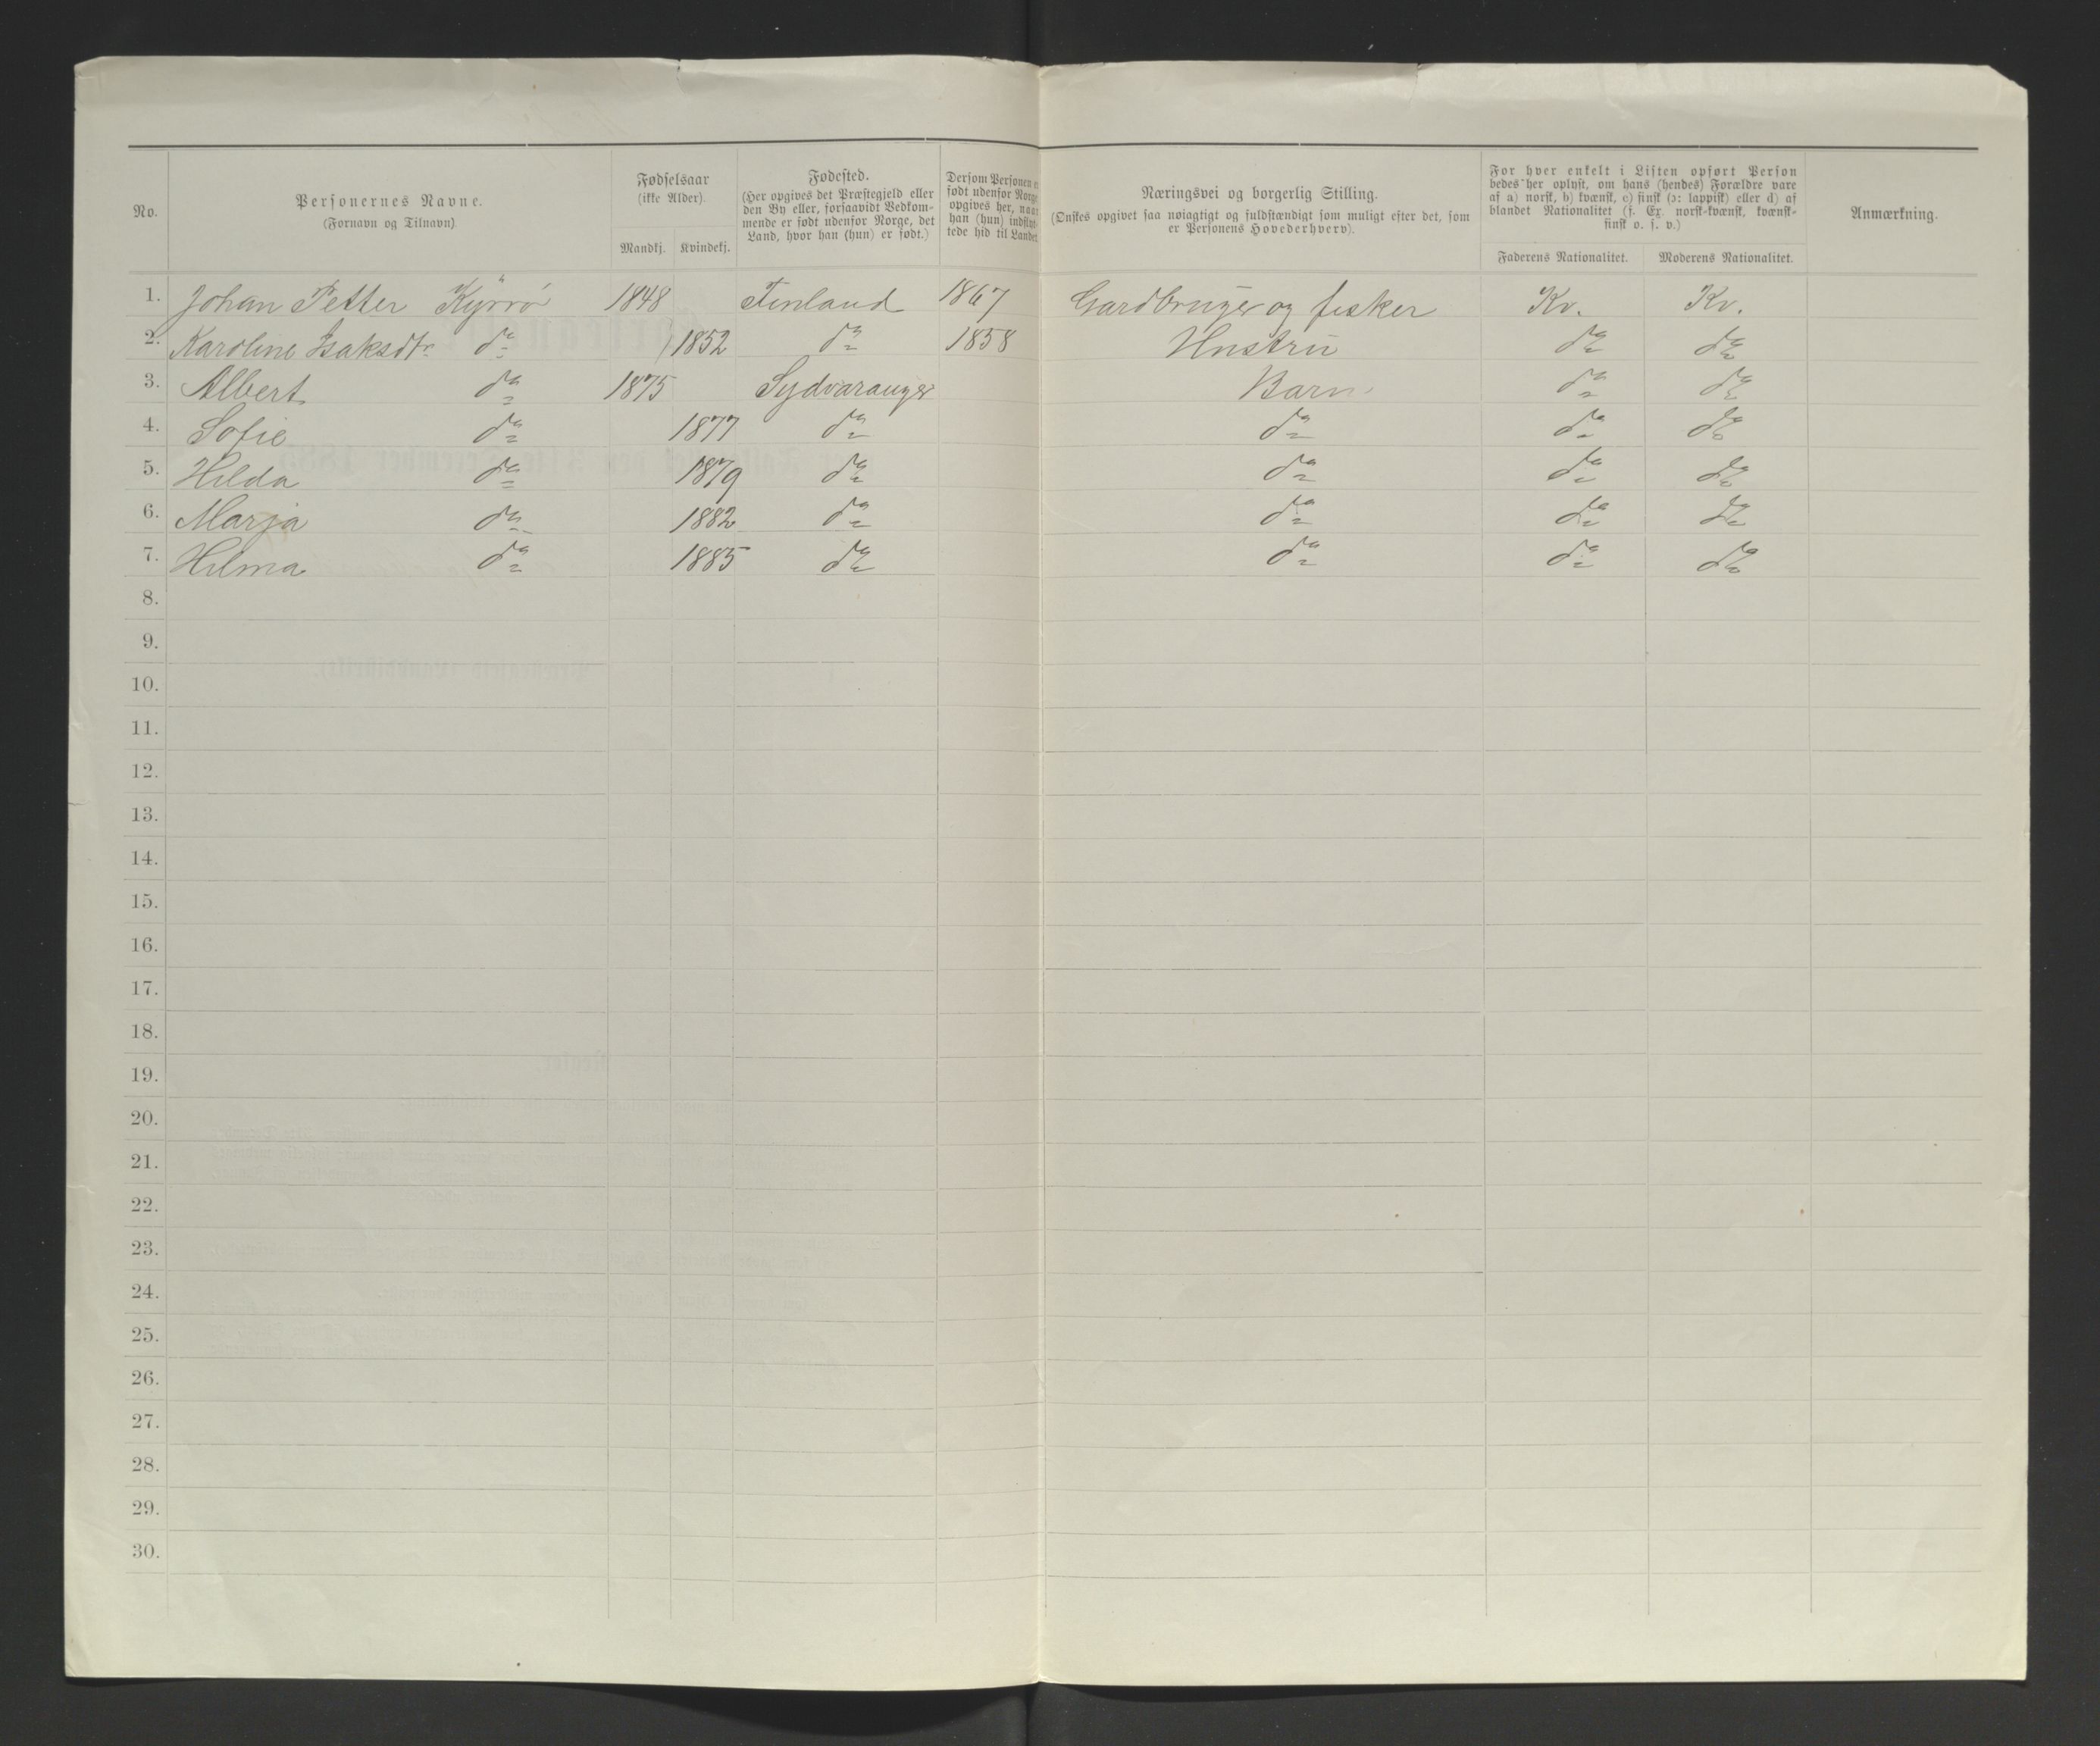 No.
Personernes Navne.
(Fornavn og Tilnavn).
Fødselsaar
(ikke Alder).
Mandkj. Kvindekj.
Fødested.
(Her opgives det Præstegjeld eller
den By eller, forsaavidt Vedkom-
mende er født udenfor Norge, det
Land, hvor han (hun) er født.)
Dersom Personen e
født udenfor Norge
opgives her, naa
han (hun) indflyt-
tede hid til Landet
Næringsvei og borgerlig Stilling.
(Ønskes opgivet saa nøiagtigt og fuldstændigt som muligt efter det, som
er Personens Hovederhverv).
For hver enkelt i Listen opført Person
bedes her oplyst, om hans (hendes) Forældre vare
af a) norsk, b) kvænsk, c) finsk (ɔ: lappisk) eller d) af
blandet Nationalitet (f. Ex. norsk-kvænsk, kvænsk-
finsk o. s. v.)
Faderens Nationalitet. Moderens Nationalitet.
Anmærkning.
1. Johan Petter Kyrrö 1848 Finland 1867 Gardbruger og fisker Kv. Kv.
2. Karoline Isaksdtr do 1852 do 1858 Hustru do do
3. Albert do 1875 Sydvaranger Barn do do
4. Sofie do 1877 do do do do
5. Hilda do 1879 do do do do
6. Marja do 1882 do do do do
7. Hilma do 1885 do do do do
8.
9.
10.
11.
12.
13.
14.
15.
16.
17.
18.
19.
20.
21.
22.
23.
24.
25.
26.
27.
28.
29.
30.